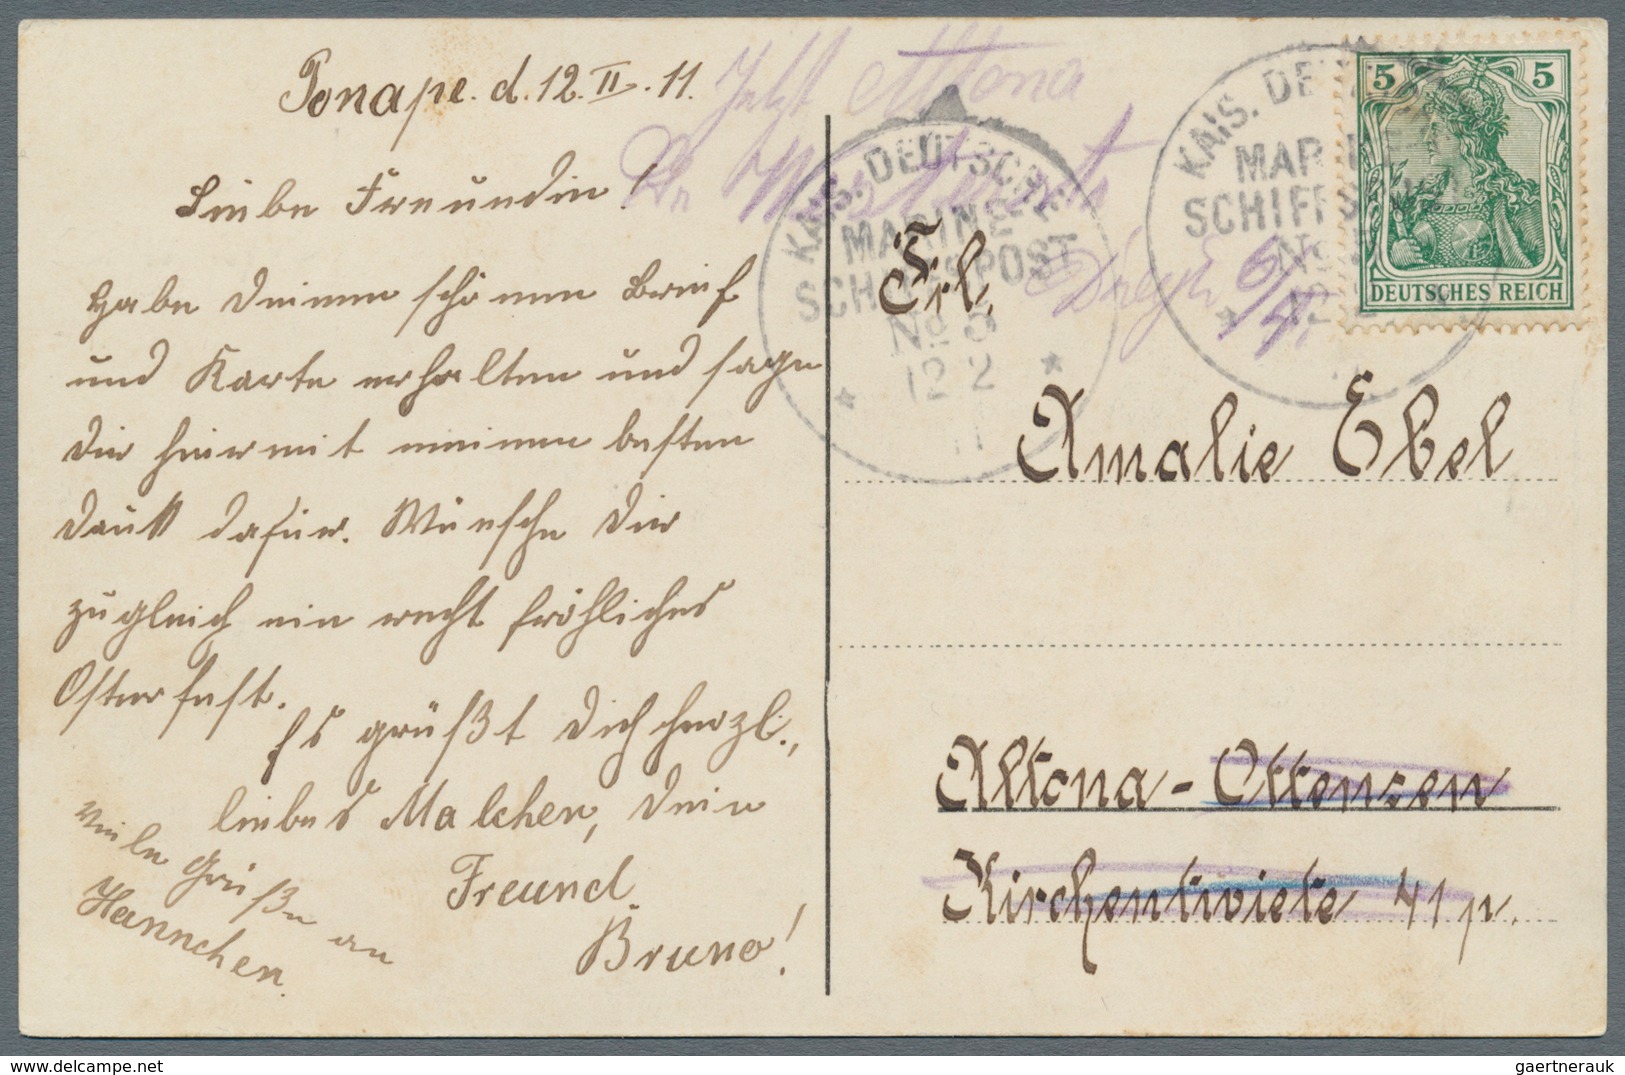 Ponape. d. 12. II. 11.
Liebe Freundin!
Habe Deinen schönen Brief
und Karte erhalten und sage
Dir hiermit meinen besten
Dank dafür. Wünsche Dir
zugleich ein recht fröhliches
Osterfest.
Es grüßt Dich herzl.,
liebes Malchen, Dein
Freund.
Bruno!
Viele Grüße an
Hannchen.
Jetzt Altona
KAIS. DEUTSCHE
MARINE-
SCHIFFSPOST
No 5
12 2
11
KAIS. DE
MAR
SCHIFFSP
No
12
5 5
DEUTSCHES REICH
Frl.
Amalie Ebel
Altona-Ottensen
Kirchentwiete 41 p.
delcampe.net
gaertnerauk